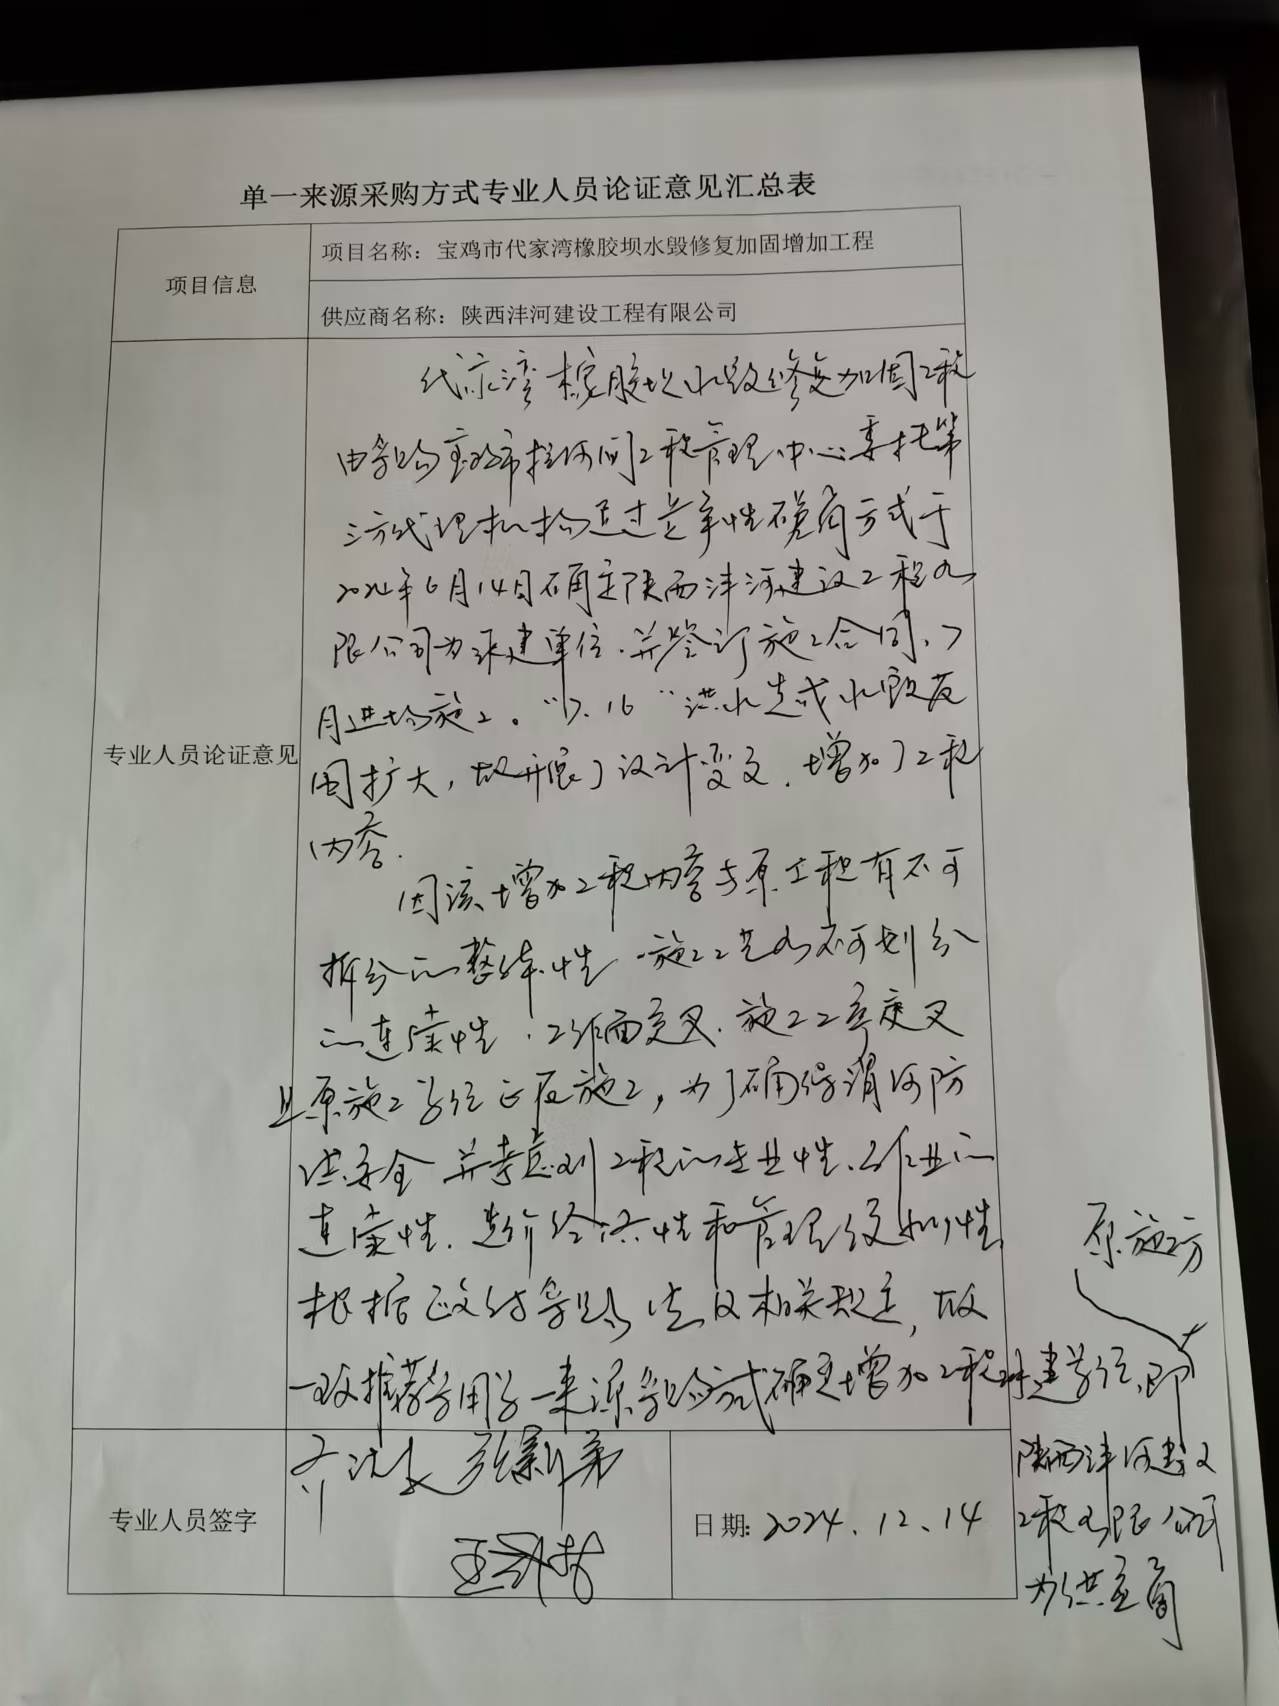 单一来源采购方式专业人员论证意见汇总表
项目信息
项目名称：宝鸡市代家湾橡胶坝水毁修复加固增加工程
供应商名称：陕西沣河建设工程有限公司
专业人员论证意见
代家湾橡胶坝水毁修复加固工程
由采购宝鸡市拦河闸工程管理中心委托第
三方代理机构通过竞争性磋商方式于
2024年6月14日确定陕西沣河建设工程有
限公司为承建单位.并签订施工合同,7
月进场施工。"7.16"洪水造成水毁范
围扩大,故开展了设计变更.增加了工程
内容.
因该增加工程内容与原工程有不可
拆分的整体性.施工工艺有不可划分
的连续性.工作面交叉.施工工序交叉
且原施工单位正在施工,为了确保渭河防
洪安全并考虑到工程的专业性.作业的
连续性.造价经济性和管理便利性
根据政府采购法及相关规定,故
一致推荐采用单一来源采购方式确定增加工程承建单位,即
原施工方
陕西沣河建设
工程有限公司
为供应商
专业人员签字
日期：2024.12.14